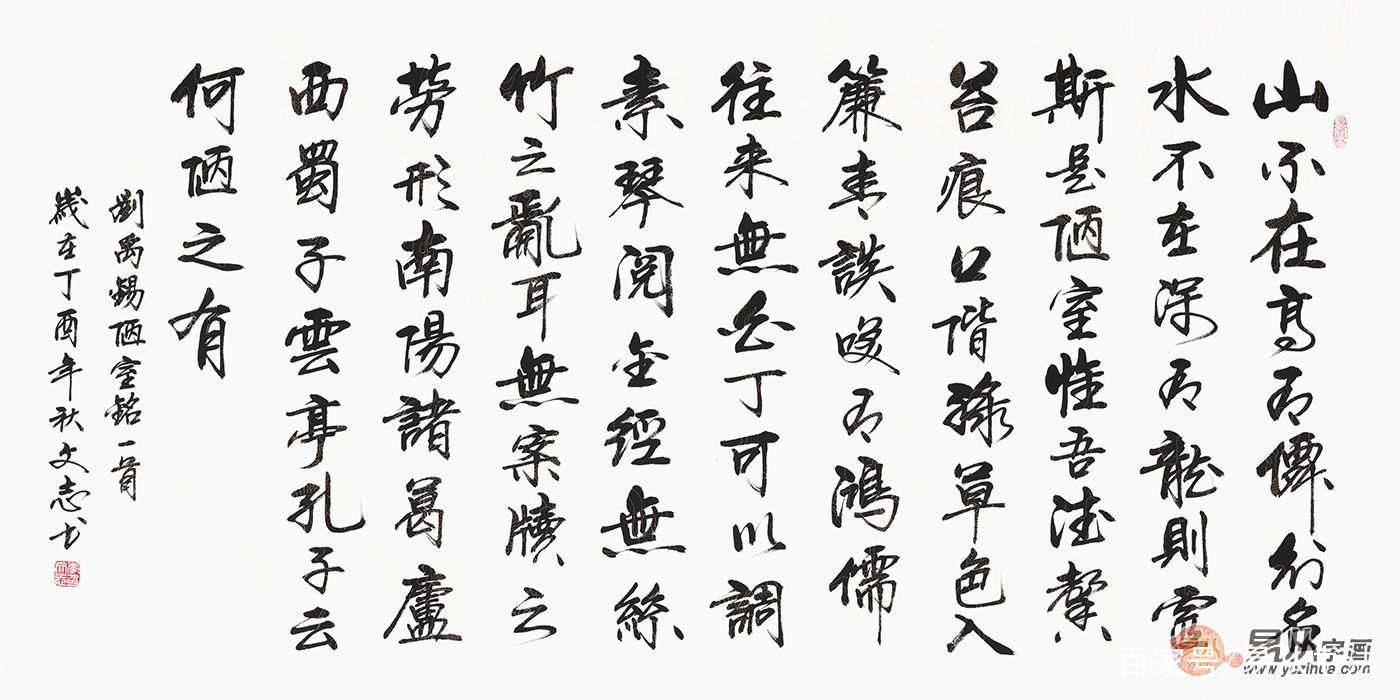 山不在高有僊則名
水不在深有龍則靈
斯是陋室惟吾德馨
苔痕上階綠草色入
簾青談咲有鴻儒
往来無白丁可以調
素琴閱金經無絲
竹之亂耳無案牘之
勞形南陽諸葛廬
西蜀子雲亭孔子云
何陋之有
劉禹錫陋室銘一首
歲在丁酉年秋文志书
易从字画
www.yczihua.com
百家号